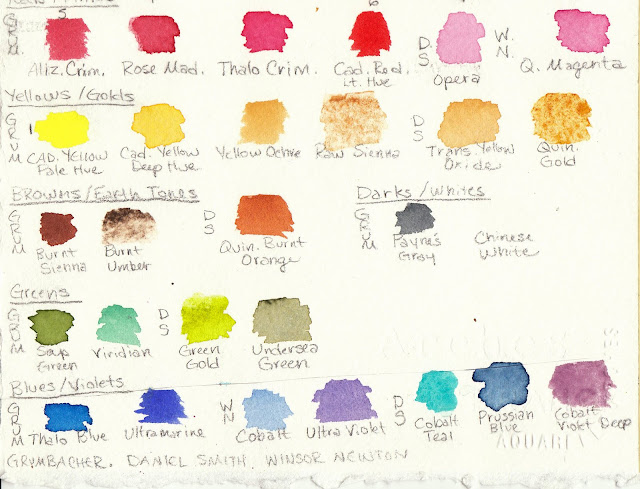 5 6
GRUM. D.S. W.N.
Aliz. Crim. Rose Mad. Thalo Crim. Cad. Red Lt. Hue Opera Q. Magenta
Yellows/Golds
GRUM DS
CAD. YELLOW Pale Hue Cad. Yellow Deep Hue Yellow Ochre Raw Sienna Trans Yellow Oxide Quin. Gold
Browns/Earth Tones Darks/Whites
GRUM DS GRUM
Burnt Sienna Burnt Umber Quin. Burnt Orange Payne's Gray Chinese White
Greens
GRUM DS
Sap Green Viridian Green Gold Undersea Green
Blues/Violets
GRUM WN DS
Thalo Blue Ultramarine Cobalt Ultra Violet Cobalt Teal Prussian Blue Cobalt Violet Deep
GRUMBACHER, DANIEL SMITH, WINSOR NEWTON